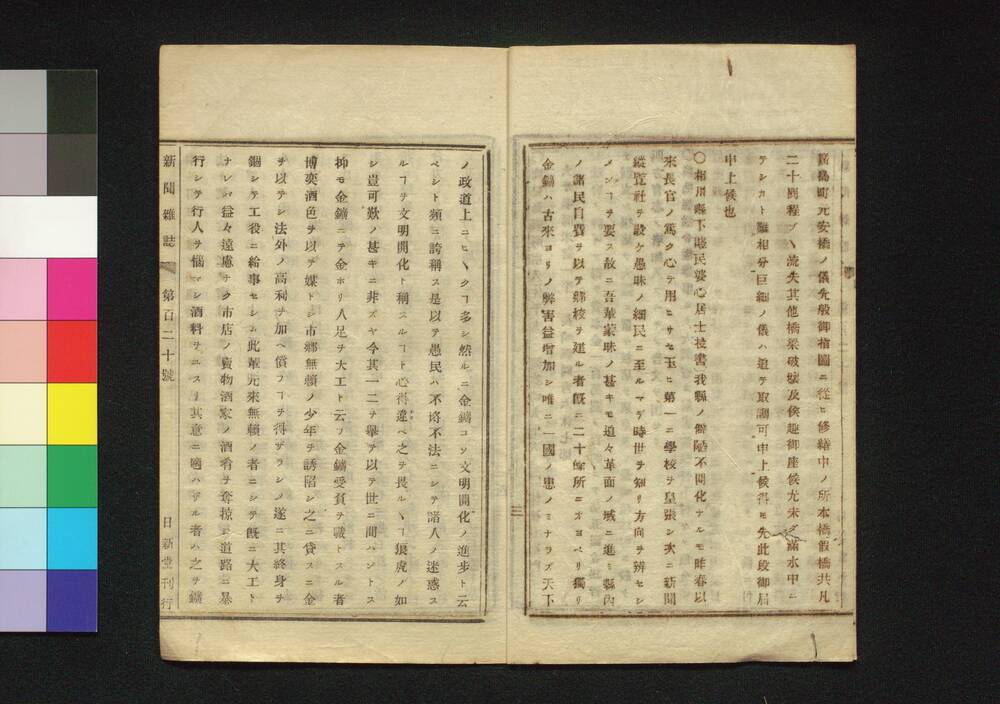 廣島町元安橋ノ儀先般御指圖ニ從ヒ修繕中ノ所本橋假橋共凡
二十間程ヅヽ流失其他橋梁破壞及候趣御座候尤未ダ滿水中ニ
テシカト難相分巨細ノ儀ハ追テ取調可申上候得モ先此段御届
申上候也
〇相川縣下賤民婆心居士投書我縣ノ僻陋不開化ナルモ昨春以
來長官ノ篤ク心ヲ用ヒサセ玉ヒ第一ニ學校ヲ皇張シ次ニ新聞
縱覽社ヲ設ケ愚昧ノ細民ニ至ルマデ時世ヲ知リ方向ヲ辨セシ
メンヿヲ要ス故ニ吾輩蒙昧ノ甚キモ追々革面ノ域ニ進ミ縣内
ノ諸民自費ヲ以テ鄕校ヲ建ル者既ニ二十餘所ニオヨベリ獨リ
金鑛ハ古來ヨリノ弊害益增加シ唯ニ一國ノ患ノミナラズ天下
三
ノ政道上ニヒヽクヿ多シ然ルニ金鑛コソ文明開化ノ進步ト云
ベシト頻ニ誇稱ス是以テ愚民ハ不埓不法ニシテ諸人ノ迷惑ス
ルヿヲ文明開化ト稱スルヿト心得違ヘ之ヲ畏ルヽヿ狼虎ノ如
シ豈可歎ノ甚キニ非ズヤ今其一二ヲ擧テ以テ世ニ問ハントス
抑モ金鑛ニテ金ホリ人足ヲ大工ト云フ金鑛受負ヲ職トスル者
博奕酒色ヲ以テ媒トシ市鄕無賴ノ少年ヲ誘陷シ之ニ貸スニ金
ヲ以テシ法外ノ高利ヲ加ヘ償フヿヲ得ザラシメ遂ニ其終身ヲ
錮シテ工役ニ給事セシム此輩元來無賴ノ者ニシテ既ニ大工ト
ナレバ益々遠慮ナク市店ノ賣物酒家ノ酒肴ヲ奪掠シ道路ニ暴
行シテ行人ヲ惱マシ酒料ヲユスリ其意ニ適ハザル者ハ之ヲ鑛
新聞雜誌 第百二十號 日新堂刊行